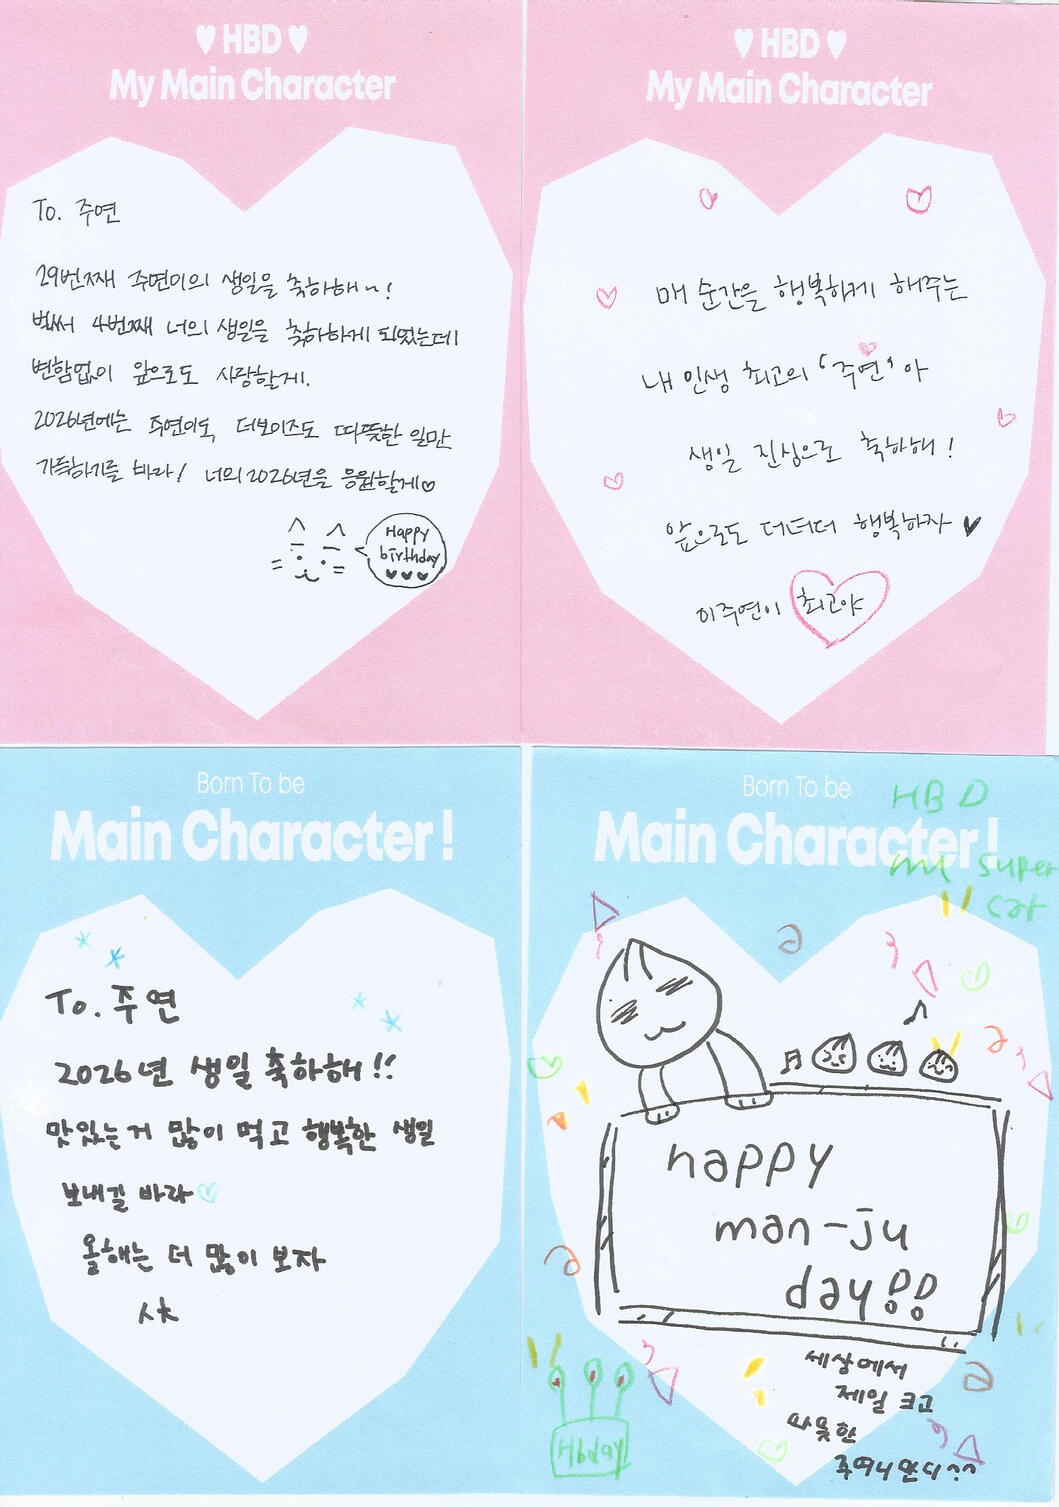 ♥ HBD ♥
My Main Character
To. 주연
29번째 주연이의 생일을 축하해~!
벌써 4번째 너의 생일을 축하하게 되었는데
변함없이 앞으로도 사랑할게.
2026년에는 주연이도, 더보이즈도 따뜻한 일만
가득하기를 바라! 너의 2026년을 응원할게♡
Happy
birthday
♥♥♥
♥ HBD ♥
My Main Character
매 순간을 행복하게 해주는
내 인생 최고의 '주연'아
생일 진심으로 축하해!
앞으로도 더더더 행복하자 ♥
이주연이 최고야
Born To be
Main Character!
To. 주연
2026년 생일 축하해!!
맛있는거 많이 먹고 행복한 생일
보내길 바라♡
올해는 더 많이 보자
Born To be
Main Character!
HBD
my super
car
happy
man-ju
day!!
세상에서
제일 크고
따뜻한
Hbday